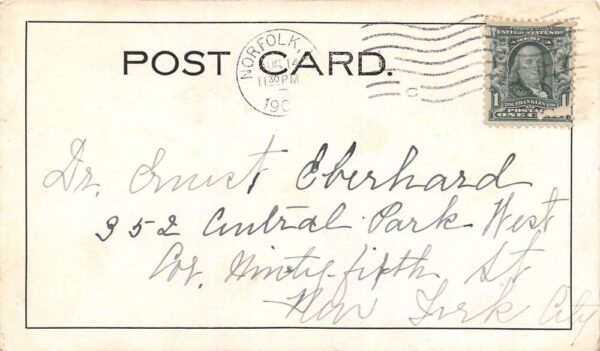 POST CARD.
NORFOLK,
AUG 14
11 30 PM
190
C
UNITED STATES OF AMERICA
1 FRANKLIN 1
POSTAGE
ONE C
Dr. Ernest Eberhard
352 Central Park West
Cor. Ninty-fifth St
New York City